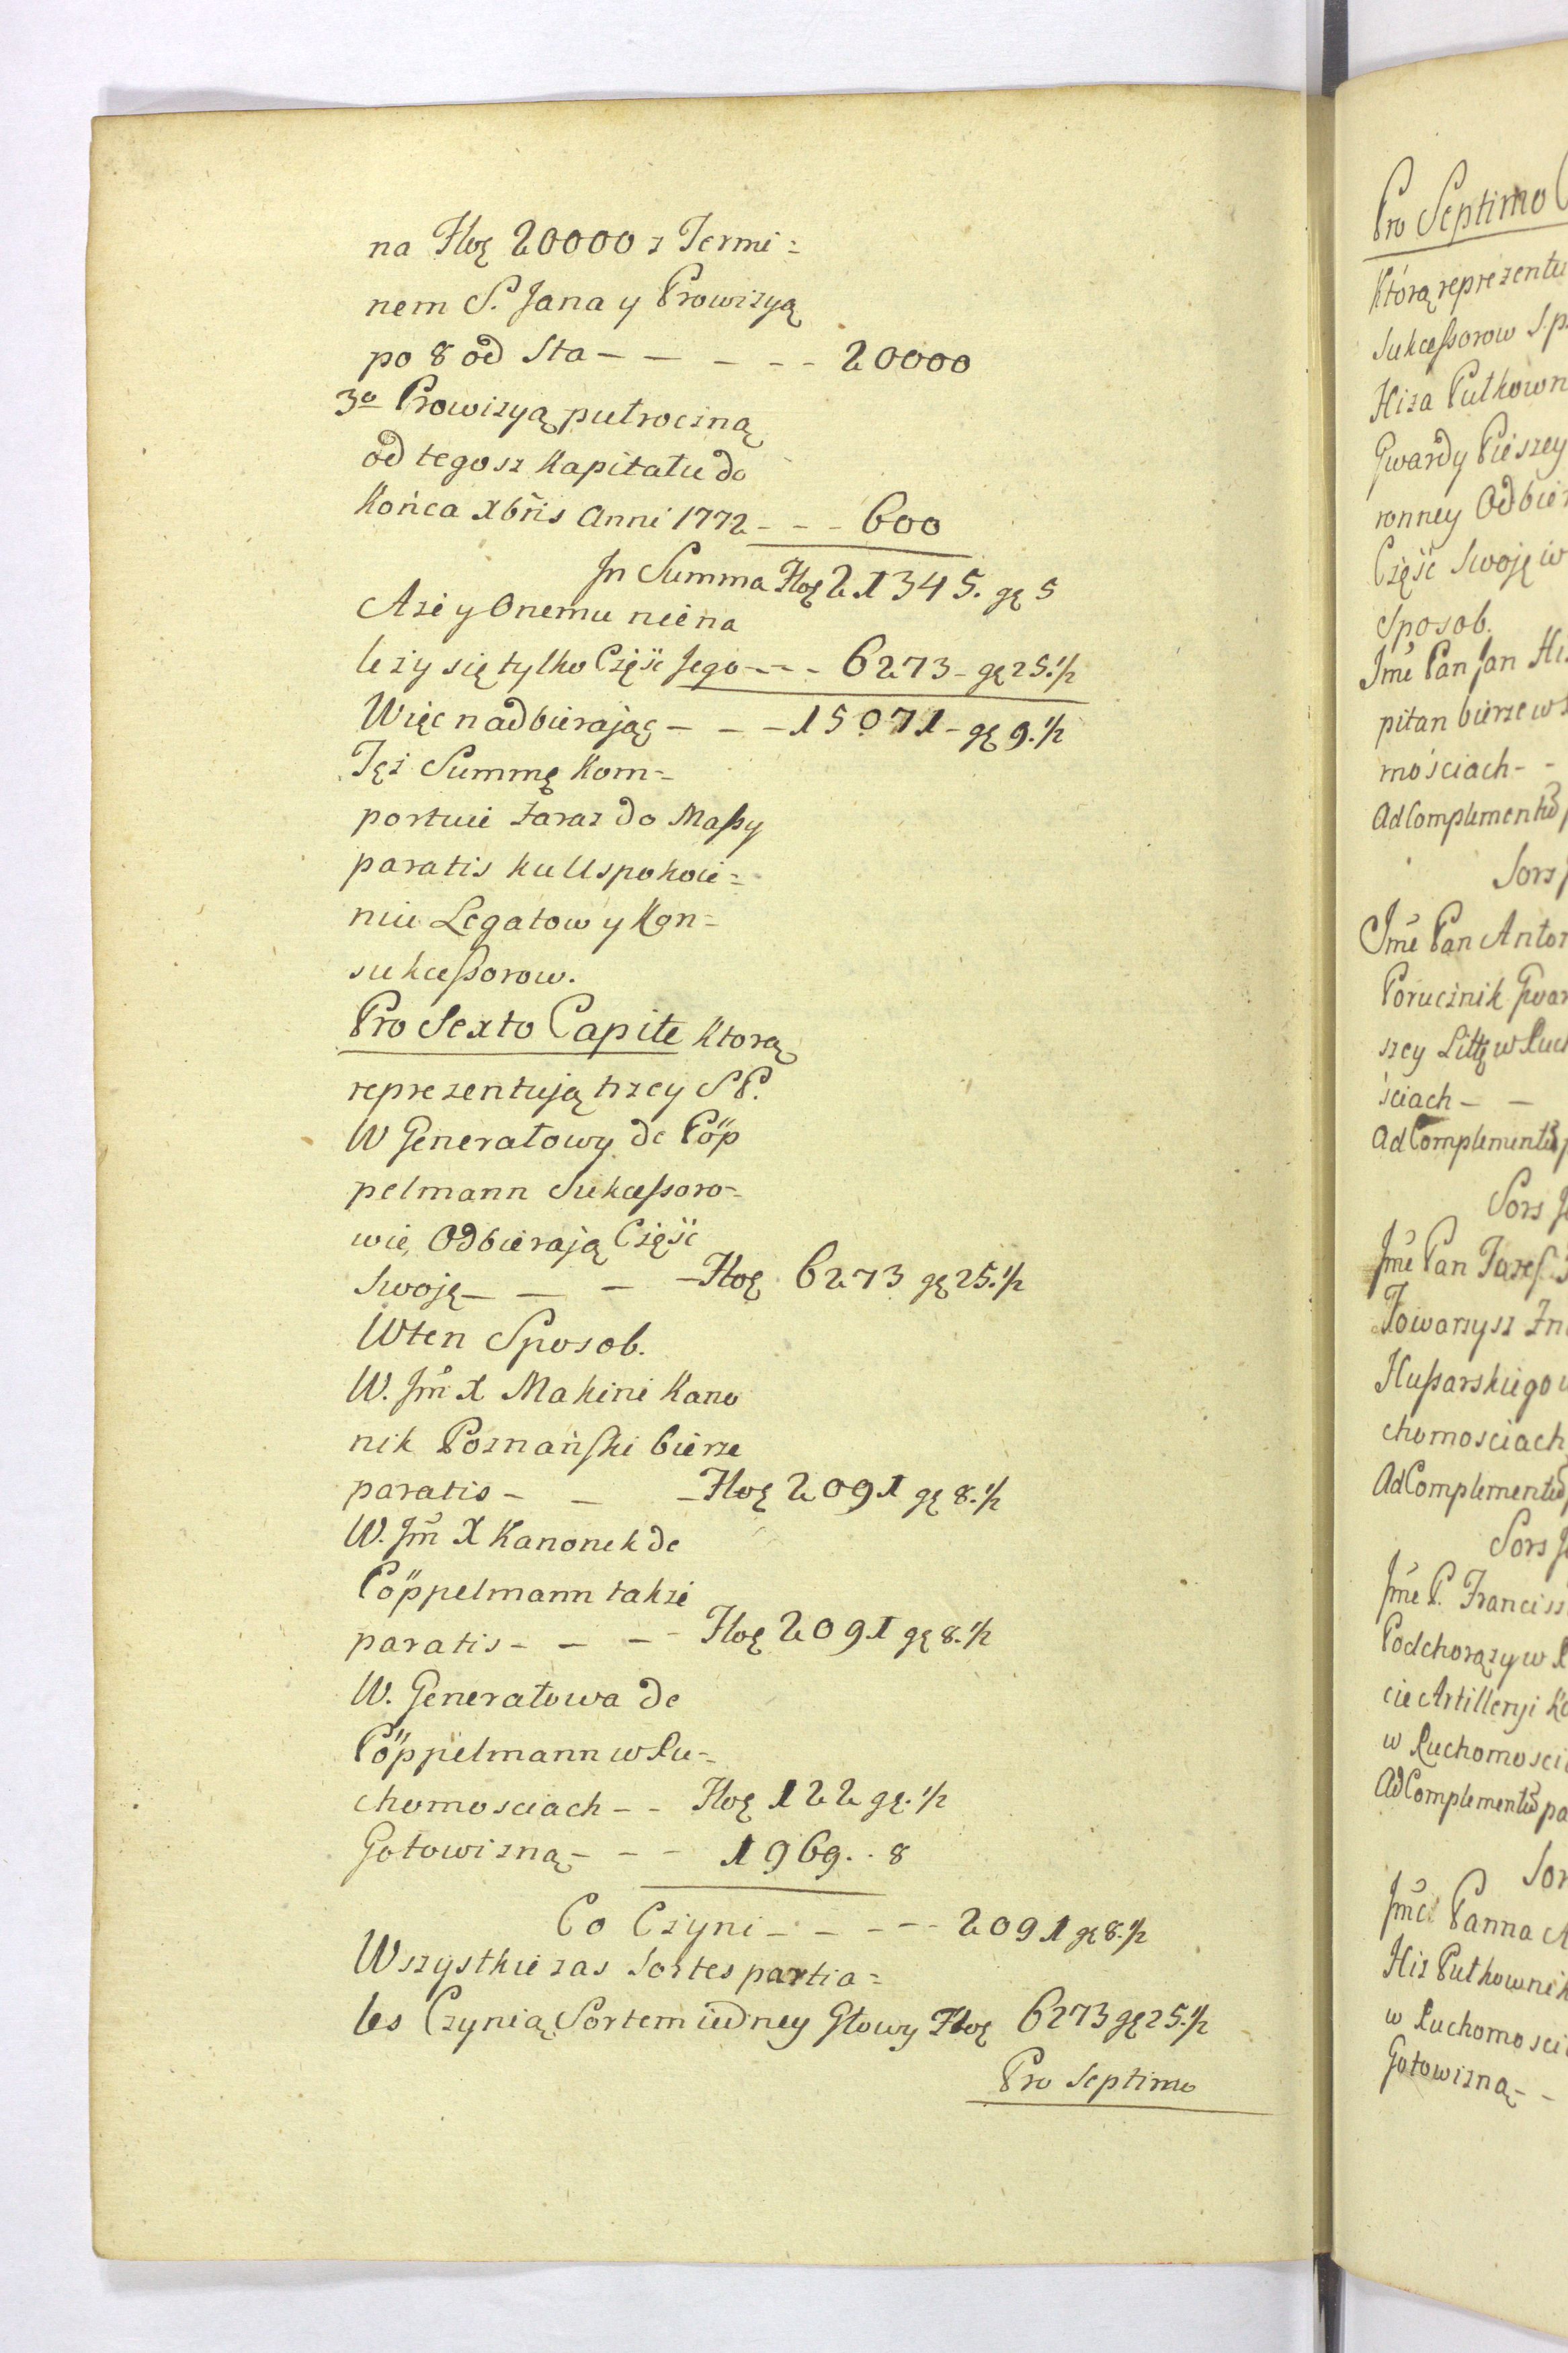 na Złoę 20000 z Termi=
nem S. Jana y Prowizyą
po 8 od Sta - - - - - 20000
3o Prowizyą pułroczną
od tegosz Kapitału do
Końca Xbris Anni 1772 - - - 600
Jn Summa Złoę 21345. gę 5
A ze y Onemu niena
lezy się tylko Częsć Jego - - - 6273 - gę 25.½
Więc nadbierając - - - 15071 - gę 9.½
Tęż Summę kom=
portuie zaraz do Massy
paratis ku Uspokoie=
niu Legatow y Kon=
sukcessorow.
Pro Sexto Capite Ktorą
reprezentują trzey SP.
W Generałowy de Pöp
pelmann Sukcessoro=
wie, Odbierają Częsć
Swoję - - - Złoę 6273 gę 25.½
W ten Sposob.
W. Jm X Makini Kano
nik Poznański bierze
paratis - - - Złoę 2091 gę 8.½
W. Jm X Kanonik de
Pöppelmann takze
paratis - - - - Złoę 2091 gę 8.½
W. Generałowa de
Pöppelmann w Ru=
chomosciach - - Złoę 122 gę. ½
Gotowizną - - - 1969. . 8
Co Czyni - - - - - 2091 gę 8.½
Wszystkie zas Sortes partia=
les Czynią Sortem iedney Głowy Złoę 6273 gę 25.½
Pro Septimo
Pro Septimo
Którą reprezentu
Sukcessorow S.p
Hiza Pułkown
Gwardy Pieszey
ronney Odbier
Część Swoję w
Sposob.
Jme Pan Jan Hi
pitan bierze w
mościach - -
Ad Complementū
Sors
Jme Pan Anton
Porucznik Gwar
szey Littę w Ruch
ściach - -
Ad Complementū
Sors
Jme Pan Jozef
Towarzysz Zn
Hussarskiego
chomosciach
Ad Complementū
Sors
Jme P. Francisz
Podchorązy w
cie Artilleryi Ko
w Ruchomosci
Ad Complementū pa
Sor
Jmć Panna A
Hiz Pułkownik
w Ruchomosci
Gotowizną - -